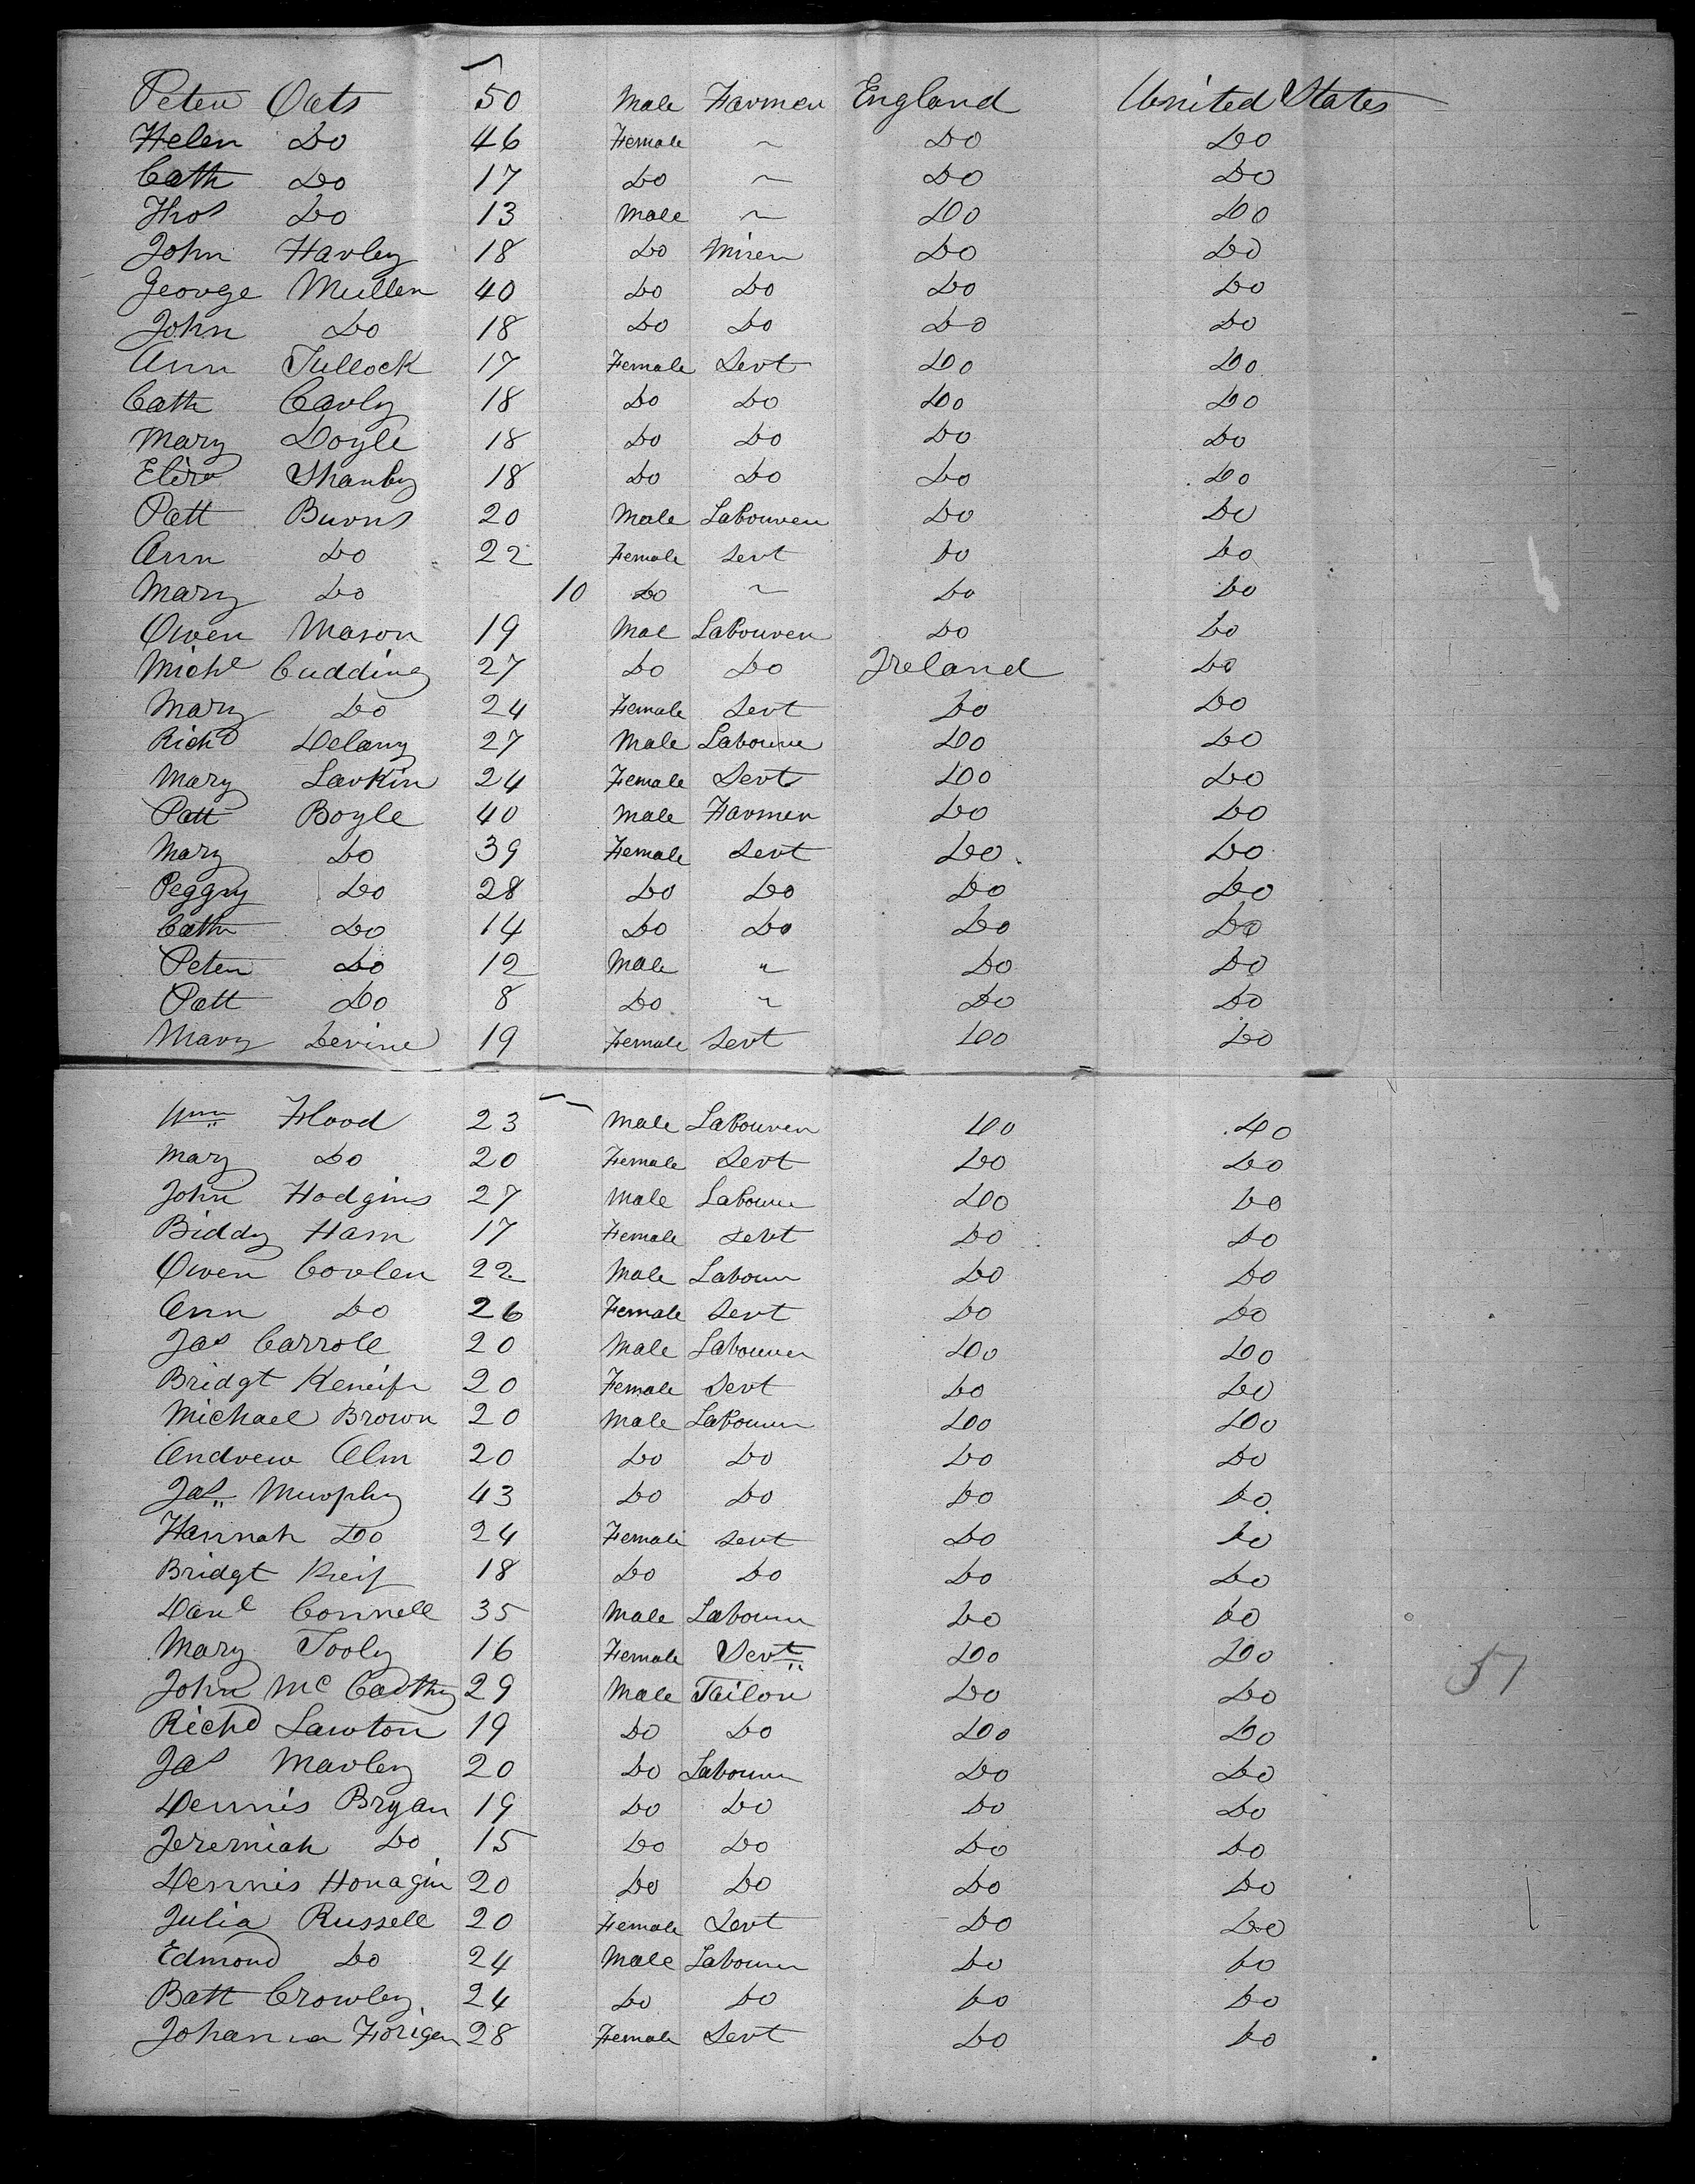 Peter Oats 50 Male Farmer England United States
Helen Do 46 Female ~ Do Do
Cath Do 17 Do ~ Do Do
Thos Do 13 Male ~ Do Do
John Harley 18 Do Miner Do Do
George Mullen 40 Do Do Do Do
John Do 18 Do Do Do Do
Ann Tullock 17 Female Servt Do Do
Cath Carly 18 Do Do Do Do
Mary Doyle 18 Do Do Do Do
Eliza Shanby 18 Do Do Do Do
Patt Burns 20 Male Labourer Do Do
Ann Do 22 Female Servt Do Do
Mary Do 10 Do ~ Do Do
Owen Mason 19 Mal Labourer Do Do
Michl Cudding 27 Do Do Ireland Do
Mary Do 24 Female Servt Do Do
Richd Delany 27 Male Labourer Do Do
Mary Larkin 24 Female Servt Do Do
Patt Boyle 40 Male Farmer Do Do
Mary Do 39 Female Servt Do Do
Peggy Do 28 Do Do Do Do
Cath Do 14 Do Do Do Do
Peter Do 12 Male " Do Do
Patt Do 8 Do ~ Do Do
Mary Devine 19 Female Servt Do Do
Wm Flood 23 Male Labourer Do Do
Mary Do 20 Female Servt Do Do
John Hodgins 27 Male Labourer Do Do
Biddy Ham 17 Female Servt Do Do
Owen Corlen 22 Male Labour Do Do
Ann Do 26 Female Servt Do Do
Jas Carroll 20 Male Labourer Do Do
Bridgt 20 Female Servt Do Do
Michael Brown 20 Male Labourer Do Do
Andrew Alm 20 Do Do Do Do
Jas Murphy 43 Do Do Do Do
Hannah Do 24 Female Servt Do Do
Bridgt 18 Do Do Do Do
Danl Connell 35 Male Labourer Do Do
Mary Tooly 16 Female Servt Do Do
John Mc Cadthy 29 Male Tailor Do Do
Richd Lawton 19 Do Do Do Do
51
Jas Marley 20 Do Labourer Do Do
Dennis Bryan 19 Do Do Do Do
Jeremiah Do 15 Do Do Do Do
Dennis Honagin 20 Do Do Do Do
Julia Russell 20 Female Servt Do Do
Edmond Do 24 Male Labourer Do Do
Batt Crowley 24 Do Do Do Do
Johanna 28 Female Servt Do Do